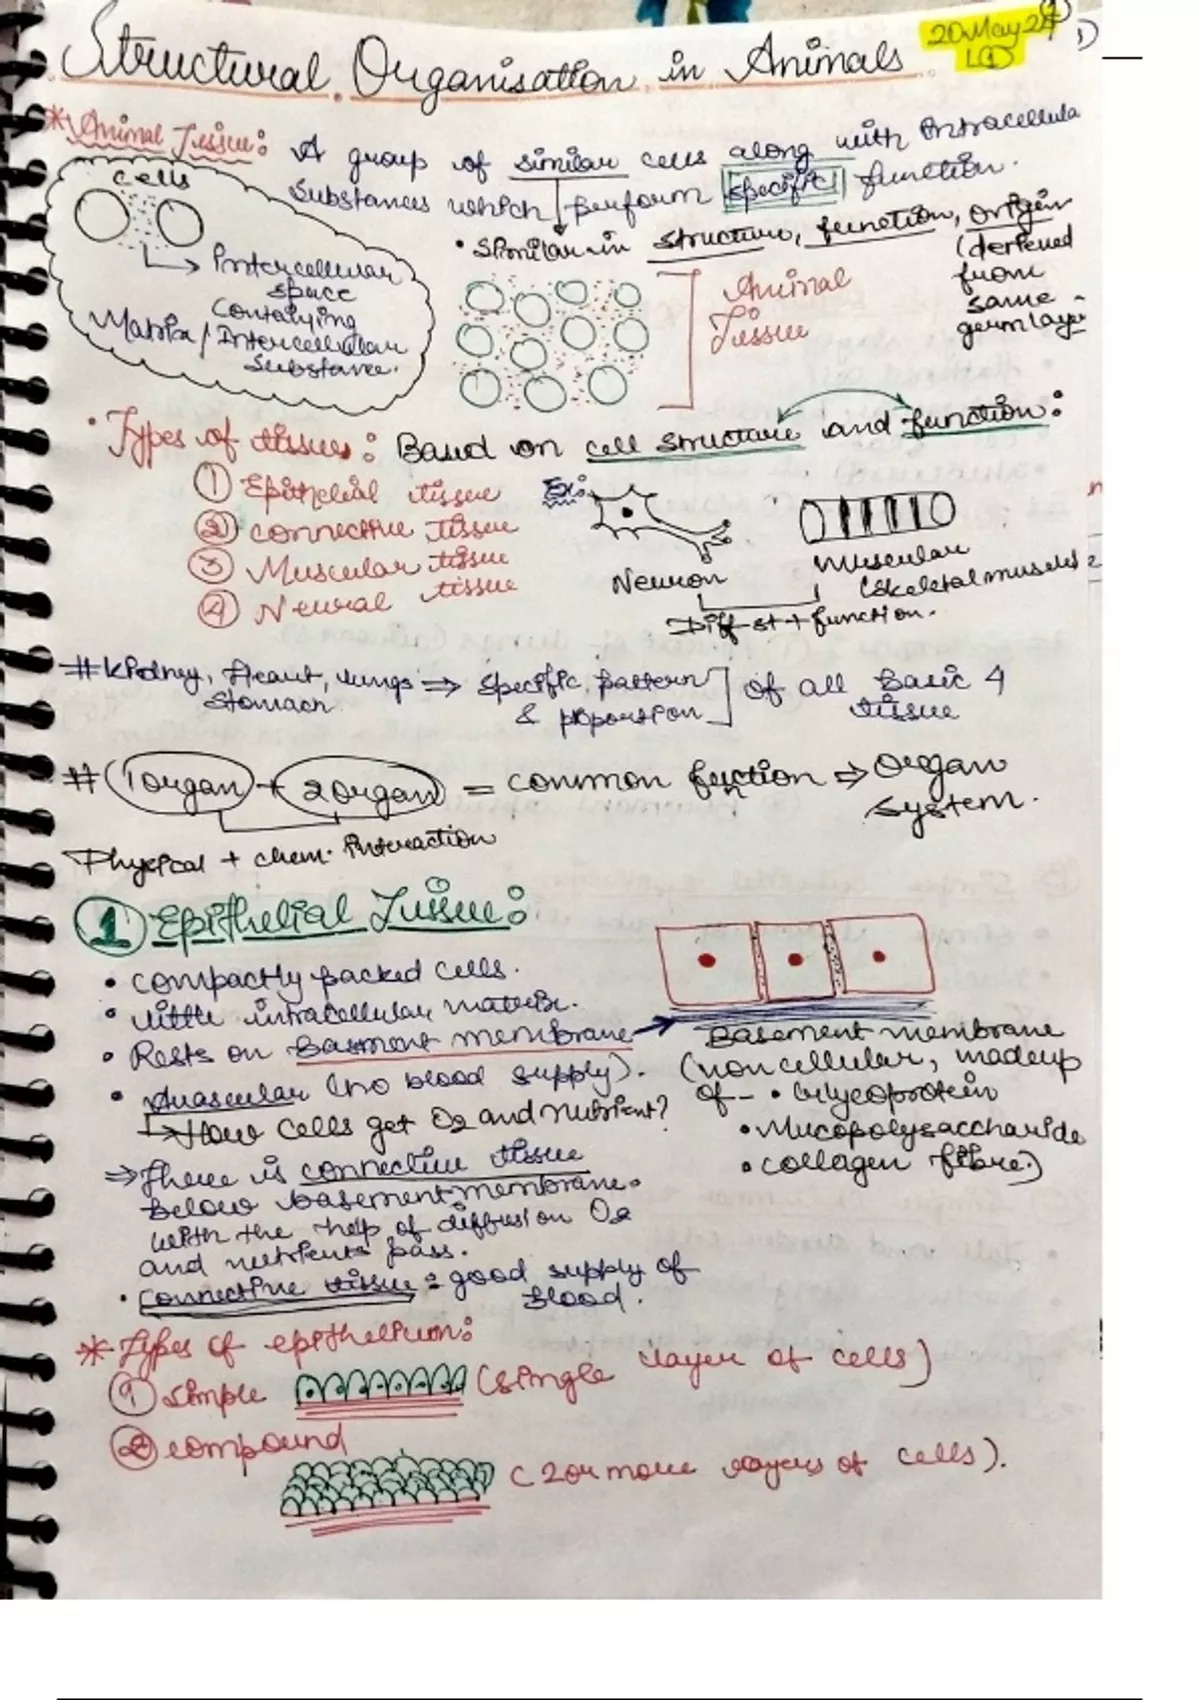 Structural Organisation in Animals
20 May 24
L①
1)
* Animal Tissue: A group of similar cells along with Intracellula
Substances which perform specific function.
• Similar in structure, function, origin
(derieved
from
same
germ layer
cells
Intercellular
space
Containing
Matrix / Intercellular
Substance.
Animal
Tissue
• Types of tissues: Based on cell structure and function:
① Epithelial tissue
② connective tissue
③ Muscular tissue
④ Neural tissue
Ex:
Neuron
Muscular
(skeletal muscles)
Diff st + function.
# Kidney, Heart, lungs ⇒ specific pattern of all Basic 4
Stomach & proportion tissue
# 1 organ + 2 organ = common function ⇒ Organ
system.
Physical + chem. interaction
① Epithelial Tissue:
• compactly packed cells.
• little intracellular matrix.
• Rests on Basment membrane
• Avascular (no blood supply).
↳ How cells get O2 and nutrient?
⇒ There is connective tissue
below basement membrane.
with the help of diffusion O2
and nutrients pass.
• connective tissue = good supply of
blood.
Basement membrane
(non cellular, madeup
of - • Glycoprotein
• Mucopolysaccharide
• collagen fibre)
* Types of epithelium:
① simple (single layer of cells)
② compound
(2 or more layers of cells).